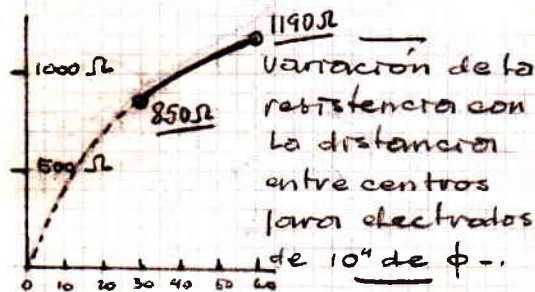 1190Ω
1000 Ω
850Ω
500 Ω
0 10 20 30 40 50 60
Variación de la
resistencia con
la distancia
entre centros
para electrodos
de 10" de ϕ -.